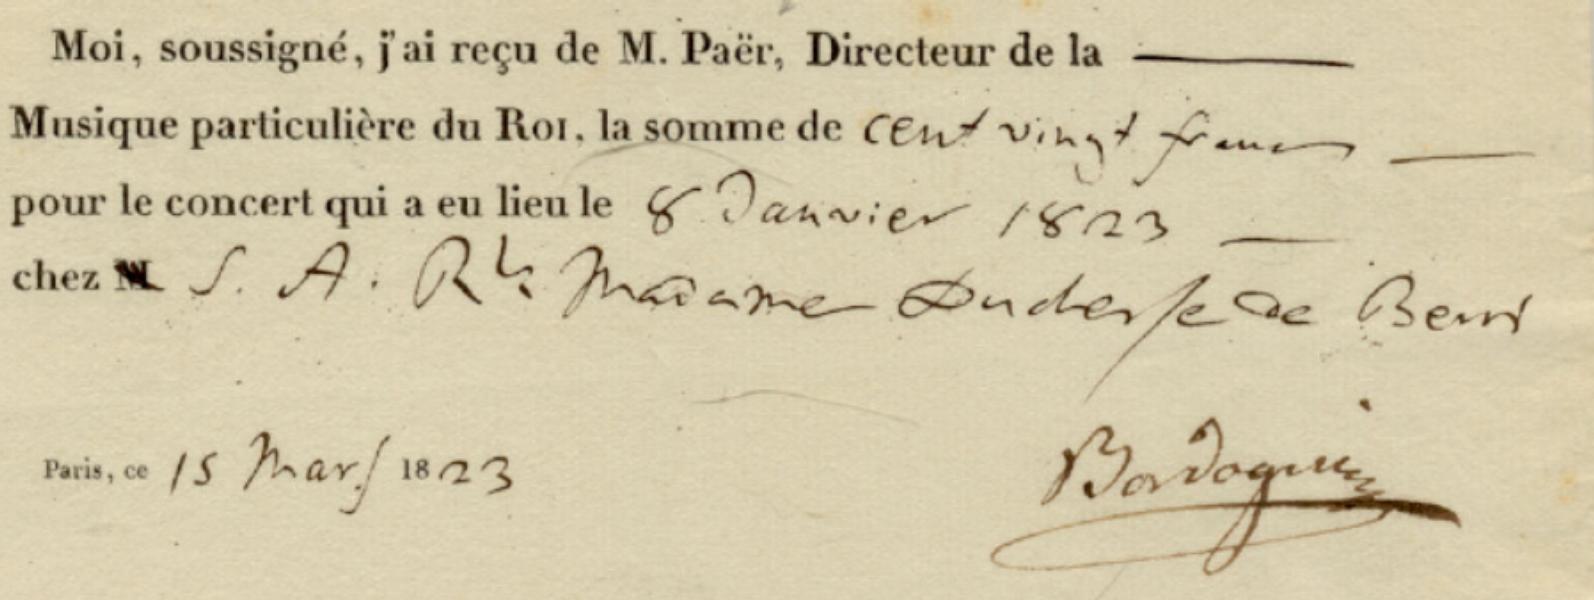 Moi, soussigné, j'ai reçu de M. Paër, Directeur de la
Musique particulière du Roi, la somme de cent vingt francs
pour le concert qui a eu lieu le 8 Janvier 1823
chez M S. A. Rle Madame Duchesse de Berri
Paris, ce 15 Mars 1823
Bordogni